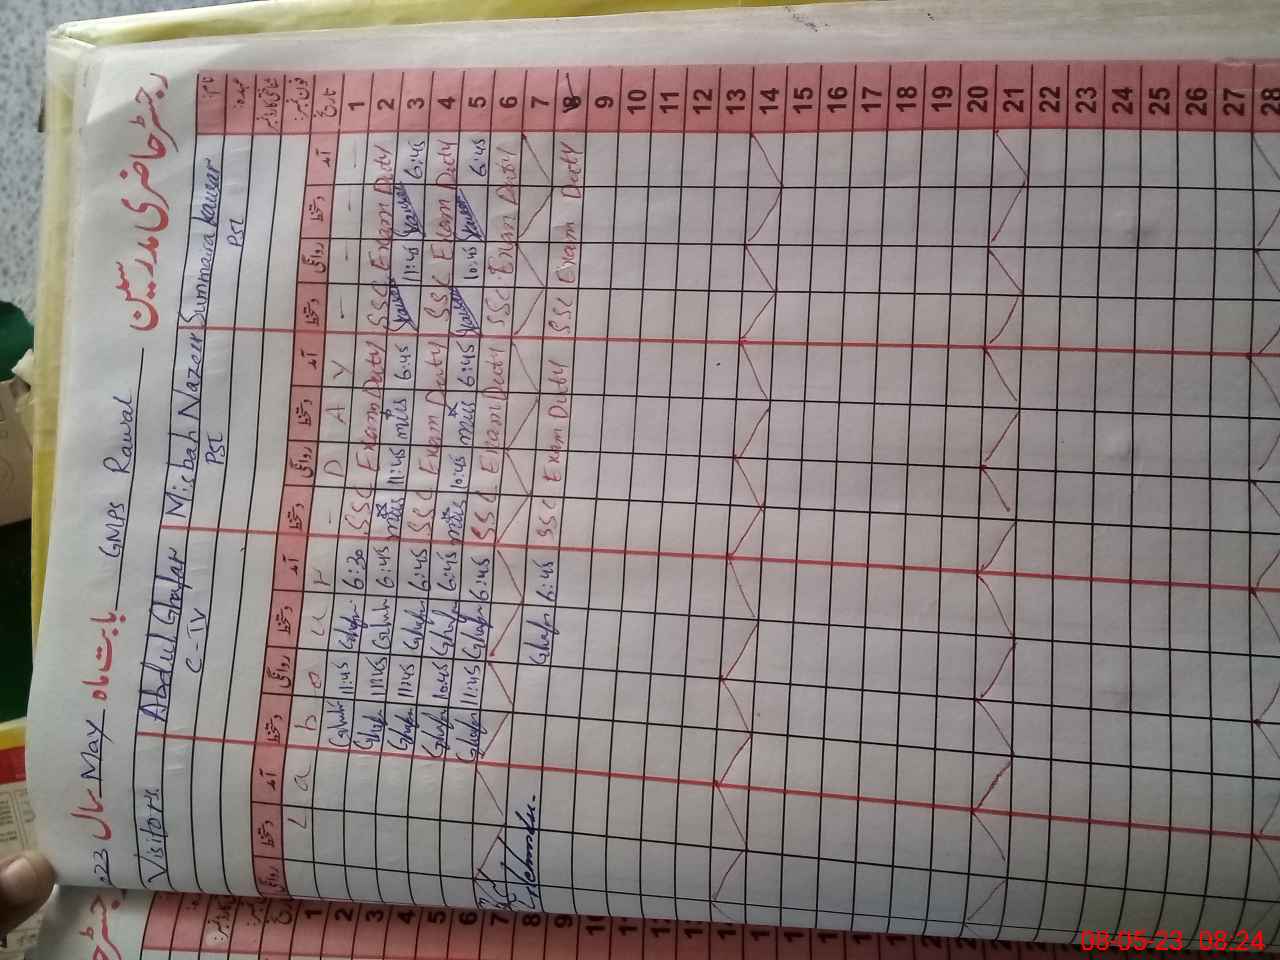 رجسٹر حاضری مدرسین GMPS Rawal بابت ماہ May سال 023
Visitors Abdul Ghafar Misbah Nazeer Summaira Kausar نام:
C-IV PST PST عہدہ:
شناختی کارڈ نمبر:
فون نمبر:
روانگی دستخط آمد دستخط روانگی دستخط آمد دستخط روانگی دستخط آمد دستخط روانگی دستخط آمد تاریخ
L a b o u r - D A Y - - - - 1
Ghafar 11:45 Ghafar 6:30 SSC Exam Duty SSC Exam Duty 2
Ghafar 11:45 Ghafar 6:45 11:45 6:45 Kausar 11:45 Kausar 6:45 3
Ghafar 11:45 Ghafar 6:45 SSC Exam Duty SSC Exam Duty 4
Ghafar 10:45 Ghafar 6:45 10:45 6:45 Kausar 10:45 Kausar 6:45 5
Ghafar 11:45 Ghafar 6:45 SSC Exam Duty SSC Exam Duty 6
7
Ghafar 6:45 SSC Exam Duty SSC Exam Duty 8
9
10
11
12
13
14
15
16
17
18
19
20
21
22
23
24
25
26
27
28
1
2
3
4
5
6
7
8
9
08-05-23 08:24